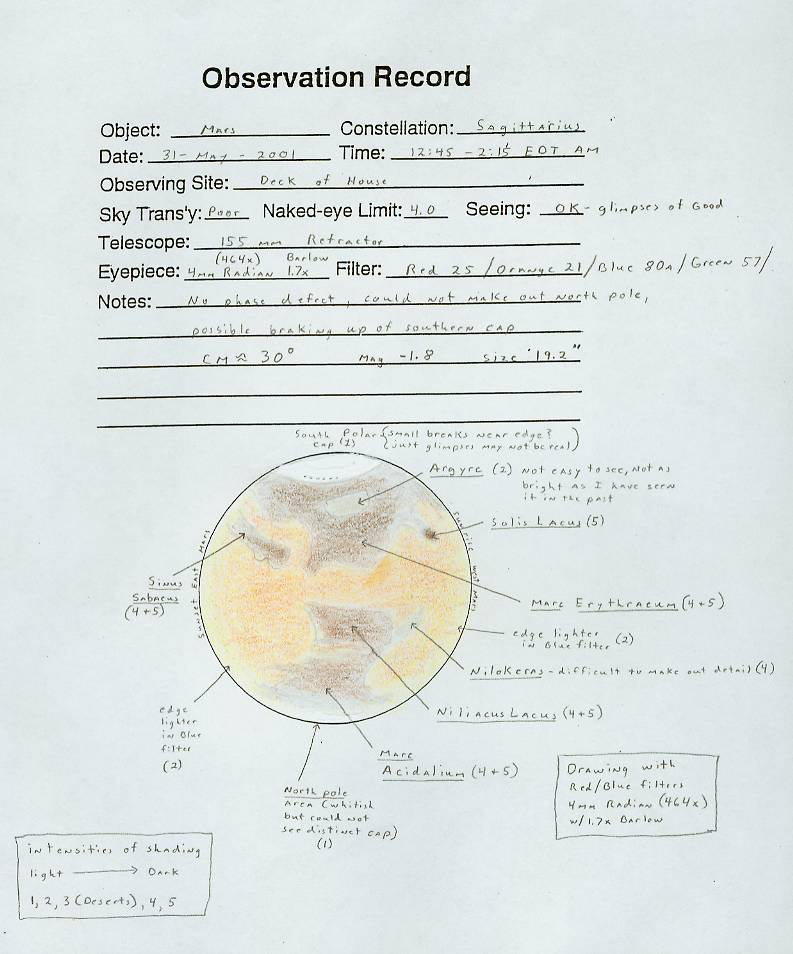 Observation Record
Object: Mars Constellation: Sagittarius
Date: 31-May-2001 Time: 12:45-2:15 EDT AM
Observing Site: Deck of House
Sky Trans'y: Poor Naked-eye Limit: 4.0 Seeing: OK-glimpses of Good
Telescope: 155 mm Refractor
(464x) Barlow
Eyepiece: 4mm Radian 1.7x Filter: Red 25/Orange 21/Blue 80A/Green 57/
Notes: No phase defect, could not make out North pole,
possible braking up of southern cap
CM ≈ 30° Mag -1.8 Size 19.2"
South Polar Cap (1) {small breaks near edge?
(just glimpses may not be real)
Argyre (2) not easy to see, not as
bright as I have seen
it in the past
Solis Lacus (5)
Sunrise West Mars
Sunset East Mars
Sinus
Sabaeus
(4+5)
Mare Erythraeum (4+5)
edge lighter
in Blue filter (2)
Nilokeras - difficult to make out detail (4)
Niliacus Lacus (4+5)
edge
lighter
in Blue
filter
(2)
Mare
Acidalium (4+5)
North pole
Area (whitish
but could not
see distinct cap)
(1)
Drawing with
Red/Blue filters
4mm Radian (464x)
w/1.7x Barlow
intensities of shading
light → Dark
1, 2, 3 (Deserts), 4, 5